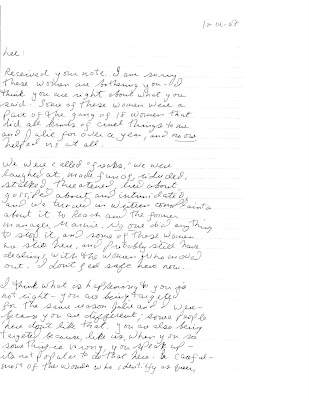 10-11-07
Lee:
Received your note. I am sorry
these women are bothering you - I
think you are right about what you
said: Some of these women were a
part of the gang of 18 women that
did all kinds of cruel things to me
and Julie for over a year, and no one
helped us at all.
We were called "freaks," we were
laughed at, made fun of, ridiculed,
stalked, threatened, lied about
gossiped about and intimidated,
and we turned in written complaints
about it to Reach and the former
manager Marnie. No one did anything
to stop it, and some of these women
are still here, and probably still have
dealings with the women who moved
out. I don't feel safe here now.
I think what is happening to you is
not right - you are being targeted
for the same reason Julie and I were -
because you are different; some people
here don't like that. You are also being
targeted because, like us, when you see
something is wrong, you speak up -
its not popular to do that here. Be careful -
most of the women who identify as